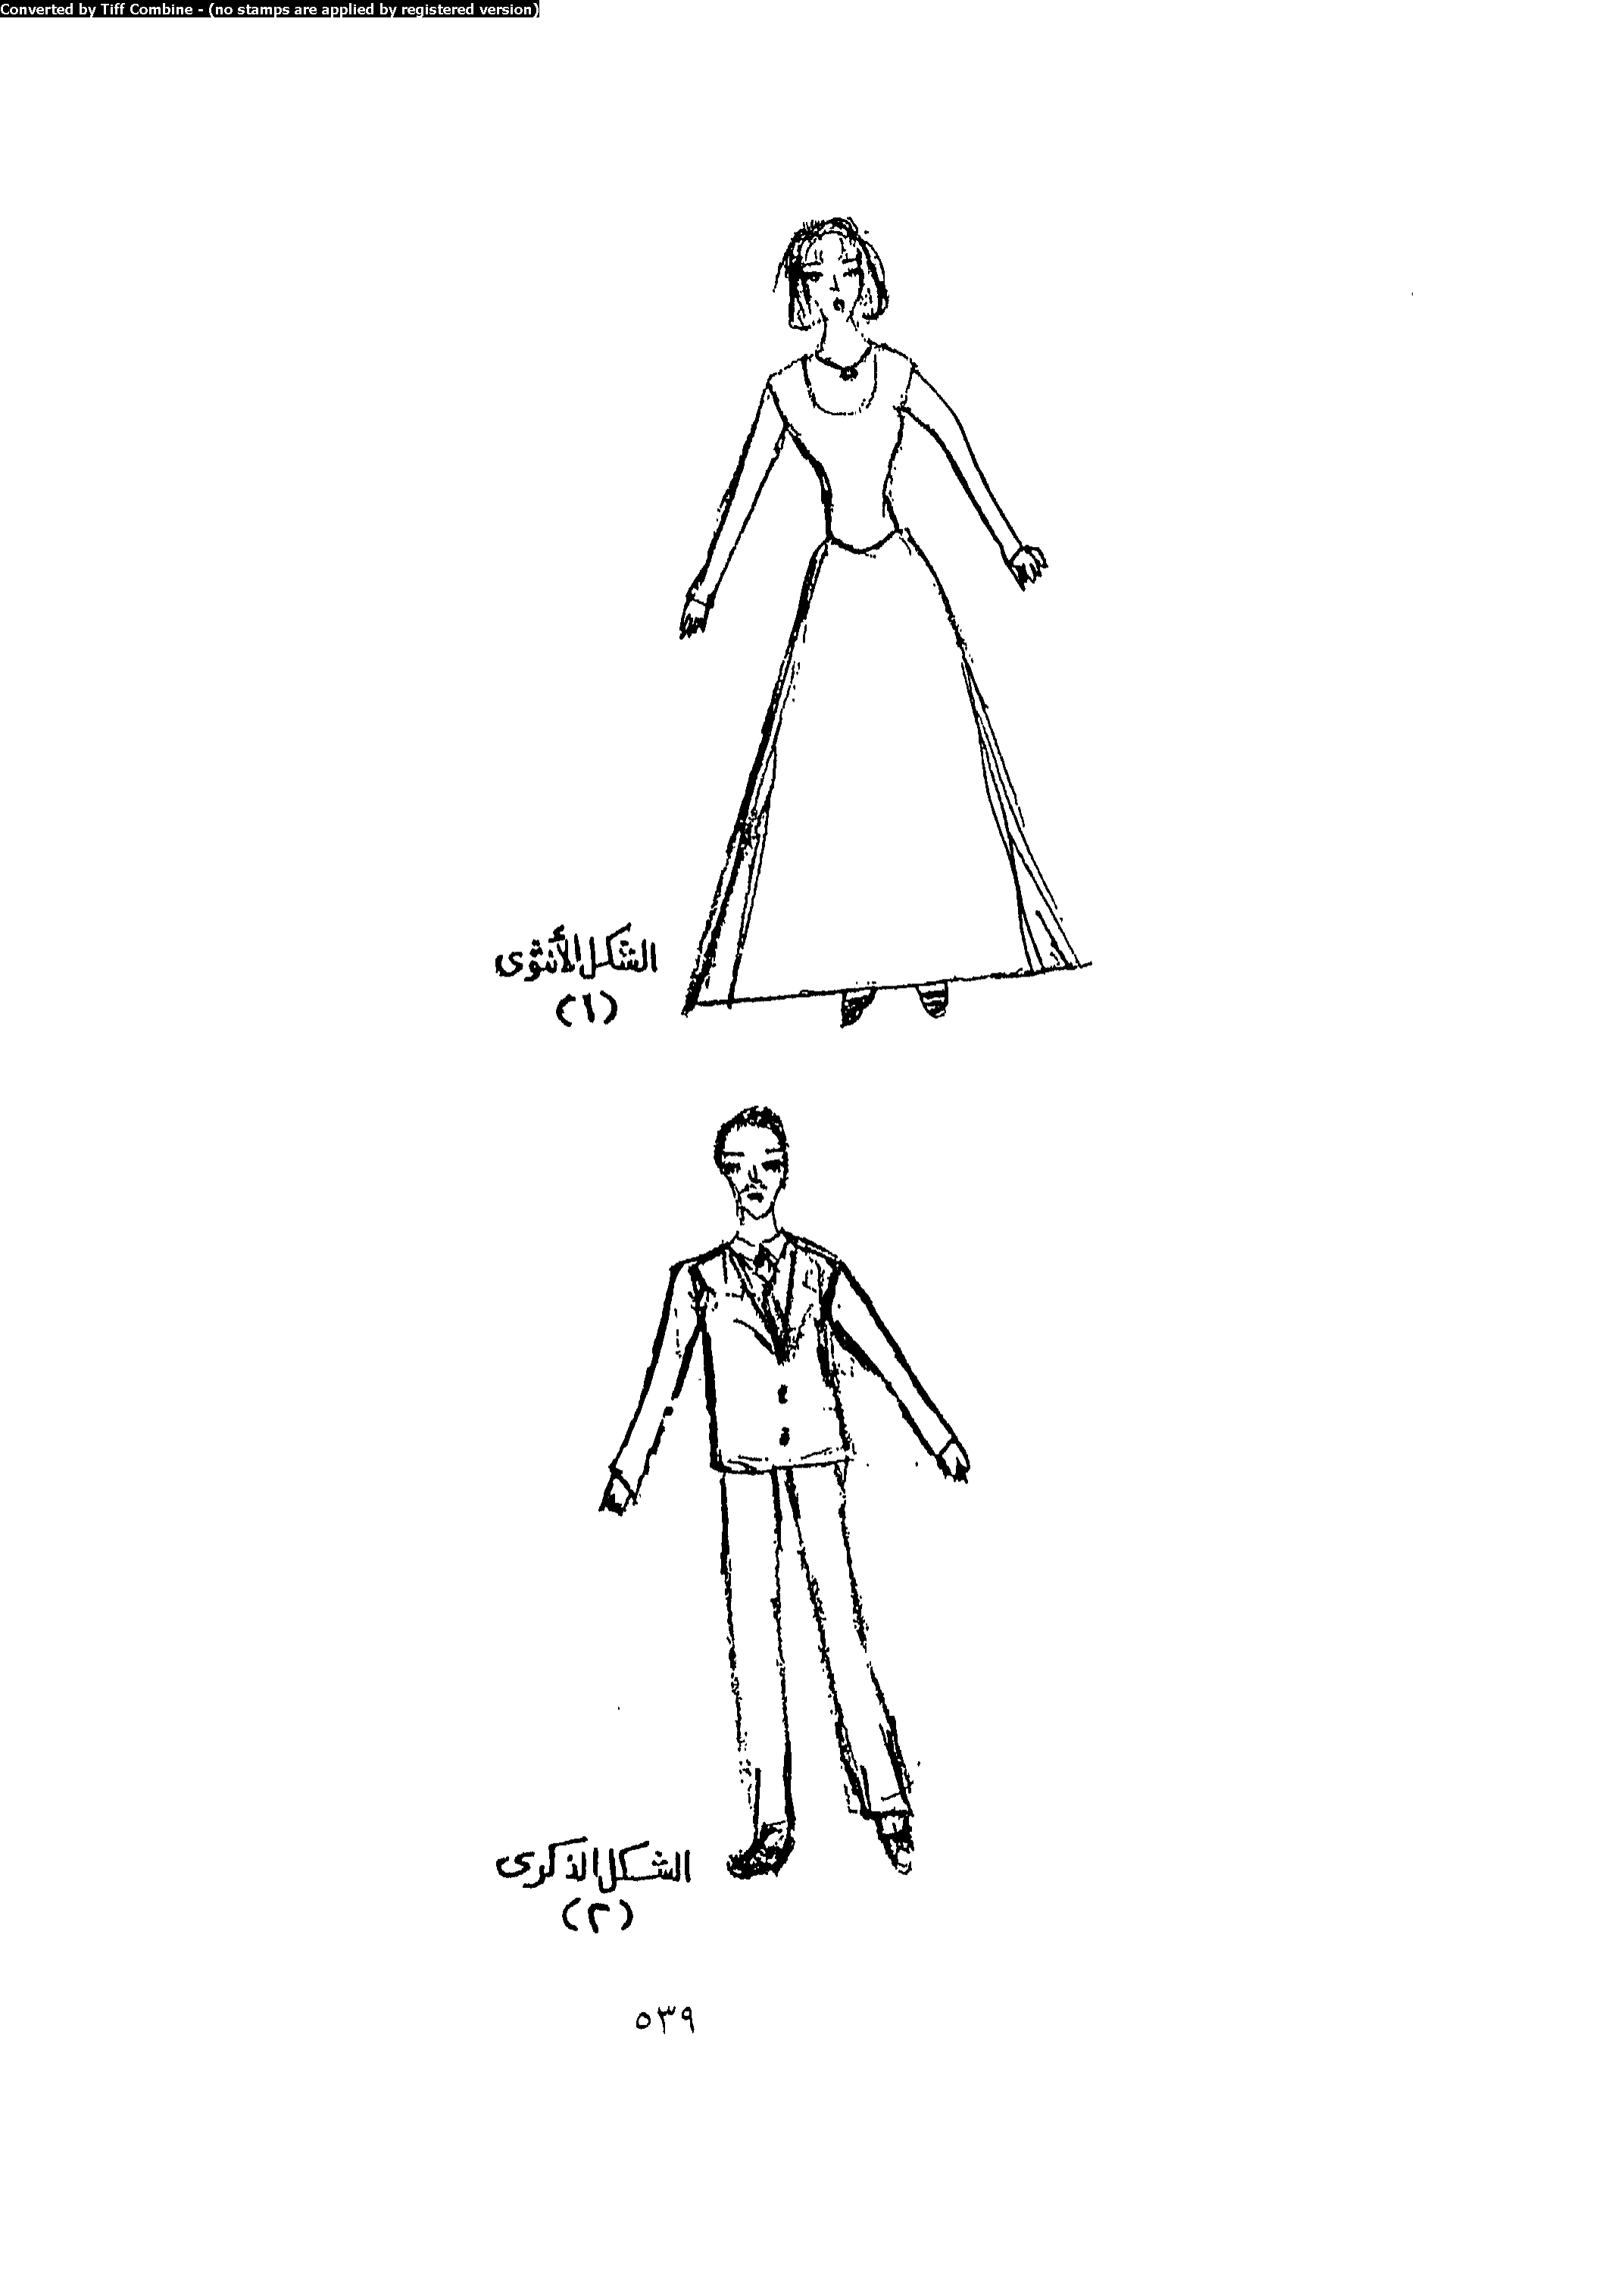 Converted by Tiff Combine - (no stamps are applied by registered version)
الشكل الأنثوى
(١)
الشكل الذكرى
(٢)
٥٣٩